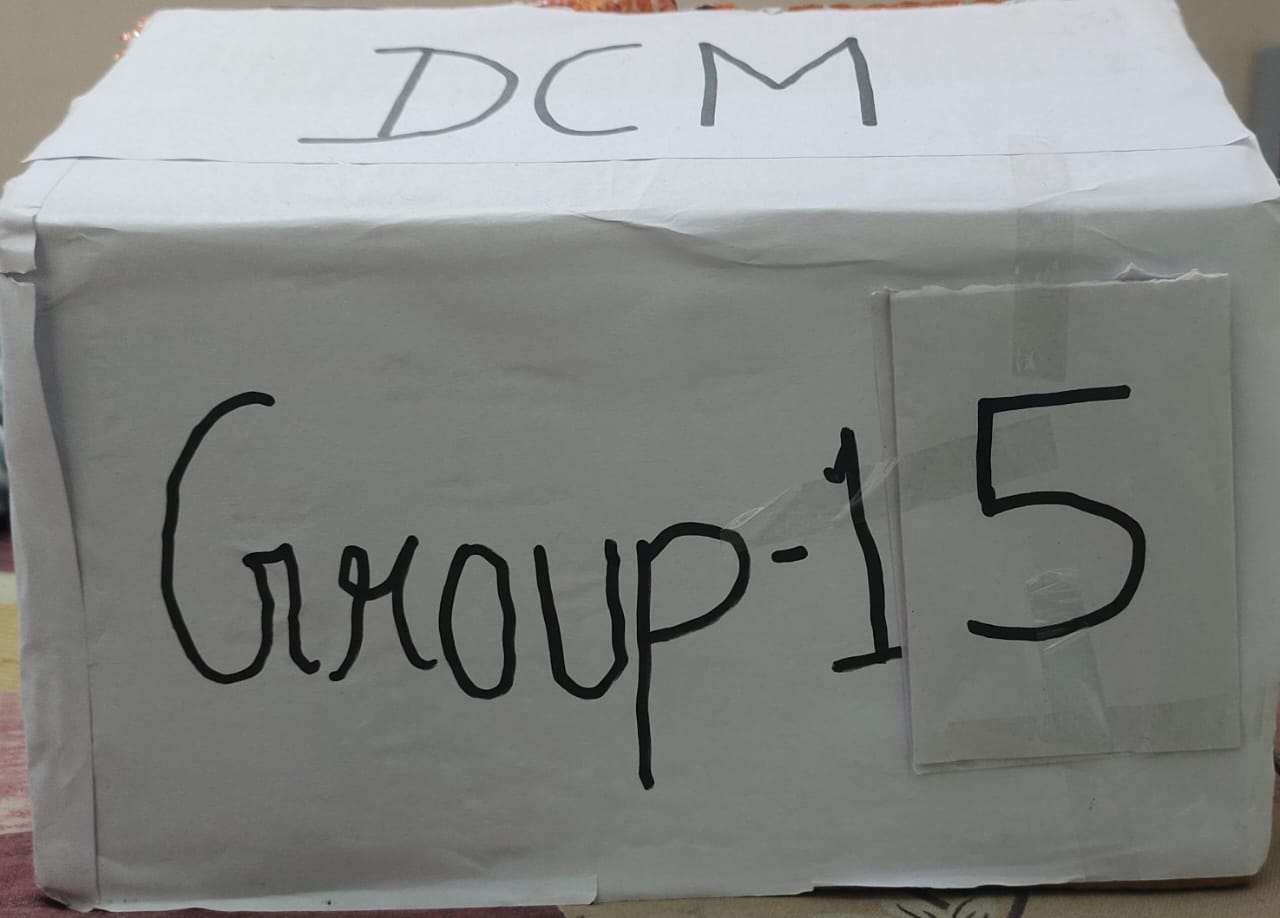 DCM
Group-15